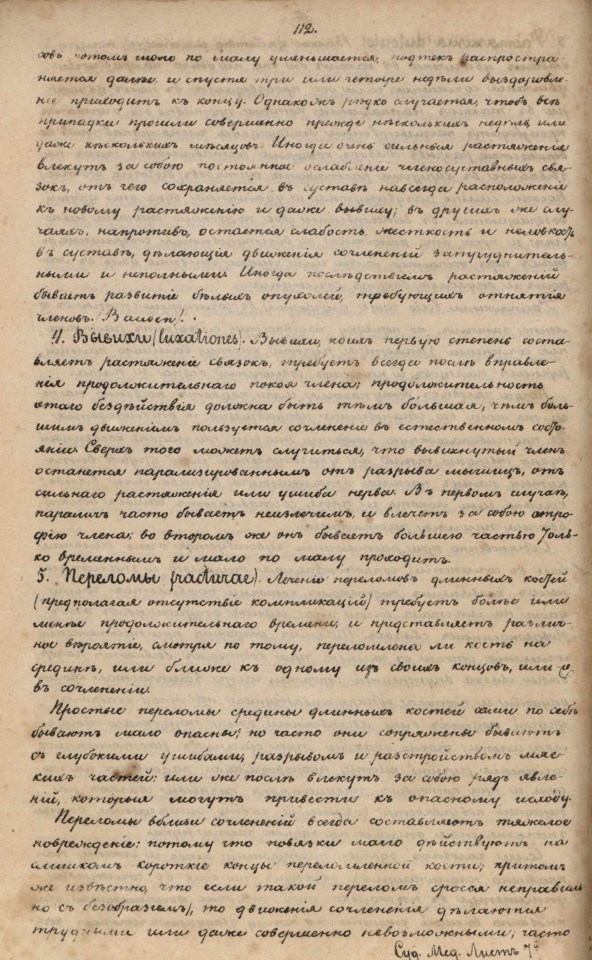 112.
совъ потомъ мало по малу уменьшается, подтекъ распростра-
няется далѣе, и спустя три или четыре недѣли выздоровле-
ніе приходитъ къ концу. Однакожъ рѣдко случается, чтобъ всѣ
припадки прошли совершенно прежде нѣсколькихъ недѣль или
даже нѣсколькихъ мѣсяцовъ. Иногда очень сильныя растяженія
влекутъ за собою постоянное ослабленіе членосуставныхъ свя-
зокъ, отъ чего сохраняется въ суставѣ навсегда расположеніе
къ новому растяженію и даже вывиху; въ другихъ же слу-
чаяхъ, напротивъ, остается слабость, жесткость и неловкость
въ суставѣ, дѣлающія движенія сочлененій затруднитель-
ными и неполными. Иногда послѣдствіемъ растяженій
бываетъ развитіе бѣлыхъ опухолей, требующихъ отнятія
членовъ.
4. Вывихи (luxationes). Вывихи, коихъ первую степень соста-
вляетъ растяженіе связокъ, требуетъ всегда послѣ вправле-
нія продолжительнаго покоя члена; продолжительность
этаго бездѣйствія должна быть тѣмъ большая, чѣмъ боль-
шимъ движеніемъ пользуется сочлененіе въ естественномъ состо-
яніи. Сверхъ того можетъ случиться, что вывихнутый членъ
останется парализированнымъ отъ разрыва мышицъ, отъ
сильнаго растяженія или ушиба нерва. Въ первомъ случаѣ,
параличъ часто бываетъ неизлечимъ, и влечетъ за собою атро-
фію члена; во второмъ же онъ бываетъ большею частью толь-
ко временнымъ и мало по малу проходитъ.
5. Переломы (fracturae). Леченіе переломовъ длинныхъ костей
(предполагая отсутствіе компликацій) требуетъ болѣе или
менѣе продолжительнаго времени, и представляетъ различ-
ное вѣроятіе, смотря по тому, переломлена ли кость на
срединѣ, или ближе къ одному изъ своихъ концовъ, или
въ сочлененіи.
Простые переломы средины длинныхъ костей сами по себѣ
бываютъ мало опасны; но часто они сопряжены бываютъ
съ глубокими ушибами, разрывомъ и разстройствомъ мяг-
кихъ частей: или же послѣ влекутъ за собою рядъ явле-
ній, которыя могутъ привести къ опасному исходу.
Переломы вблизи сочлененій всегда составляютъ тяжелое
поврежденіе: потому что повязки мало дѣйствуютъ на
слишкомъ короткіе концы переломленной кости; притомъ
же извѣстно, что если такой переломъ сросся неправиль-
но съ безобразіемъ, то движенія сочлененія дѣлаются
трудными или даже совершенно невозможными; часто
Суд. Мед. Листъ 7й